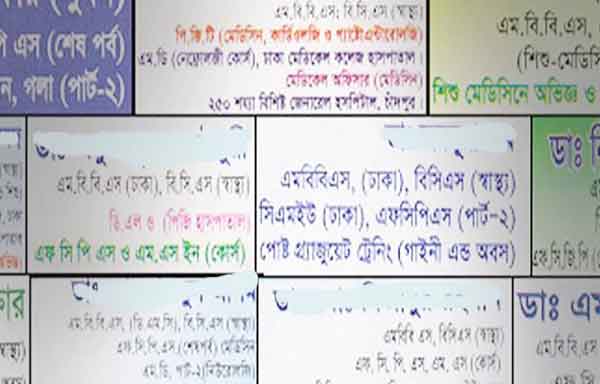 পি এস (শেষ পর্ব)
ন, গলা (পার্ট-২)
এম.বি.বি.এস; বি.সি.এস (স্বাস্থ্য)
পি.জি.টি (মেডিসিন, কার্ডিওলজি ও গ্যাষ্ট্রোএন্টারোলজি)
এম.ডি (নেফ্রোলজী কোর্স), ঢাকা মেডিকেল কলেজ হাসপাতাল।
মেডিকেল অফিসার (মেডিসিন)
২৫০ শয্যা বিশিষ্ট জেনারেল হসপিটাল, চাঁদপুর।
এম.বি.বি.এস,
(শিশু-মেডিসি
শিশু মেডিসিনে অভিজ্ঞ ও
এম.বি.বি.এস (ঢাকা), বি.সি.এস (স্বাস্থ্য)
ডি.এল ও (পিজি হাসপাতাল)
এফ সি পি এস ও এম.এস ইন (কোর্স)
এমবিবিএস, (ঢাকা), বিসিএস (স্বাস্থ্য)
সিএমইউ (ঢাকা), এফসিপিএস (পার্ট-২)
পোষ্ট গ্র্যাজুয়েট ট্রেনিং (গাইনী এন্ড অবস)
ডাঃ
এফ.সি.জি.পি
এম.বি.বি.এস, (ডি.এম.সি), বি.সি.এস (স্বাস্থ্য)
এফ.সি.পি.এস (শেষপর্ব) মেডিসিন
এম.ডি, পার্ট-২(নিউরোলজি)
এমবিবি এস, বিসিএস (স্বাস্থ্য)
এফ, সি, পি, এস, এম, এস (কোর্স)
ডাঃ এম